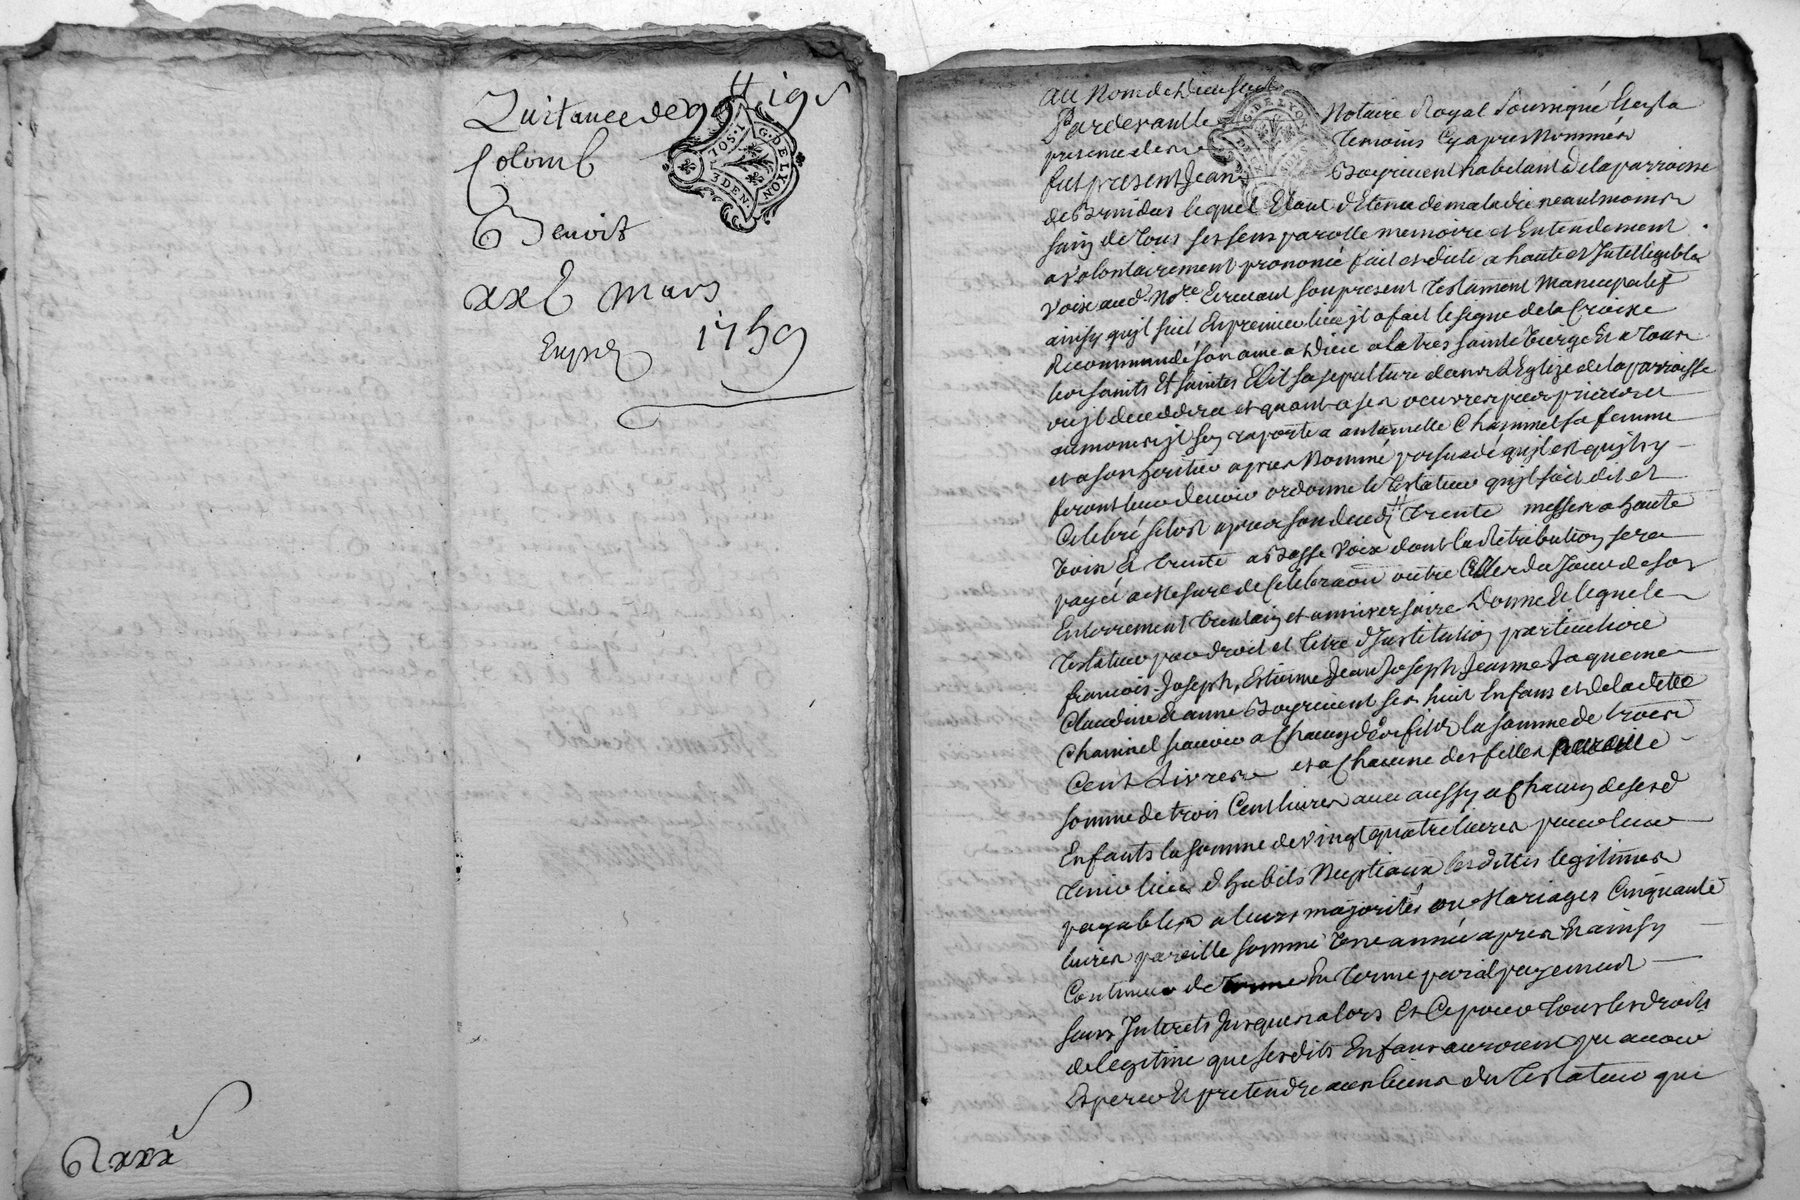 Quittance de 99 ₶ 19 s
Colomb
Benoit
xxb mars
1759
G. DE LYON
1 SOL
3 DEN.
bxxx
Au Nom de Dieu soit
Pardevant le Notaire Royal soussigné Et en la
presence de Temoins Cy apres Nommés
fut present Jean Boyrivent habitant de la parroisse
de lequel Etant detenu de maladie neantmoins
sain de tous ses sens parolle memoire et Entendement
a volontairement prononcé fait et dicté a haute et Intelligible
Voix aud. Nore Ecrivant son present Testament Nuncupatif
ainsy qu'jl suit En premier lieu jl a fait le signe de la Croix
Recommandé son ame a Dieu a la tres sainte Vierge Et a tous
les saints Et saintes Elit sa sepulture dans l'Eglize de la parroisse
ou jl deceddera et quant a ses oeuvres pies prieres et
aumones jl s'en raporte a antoinette Chaminel sa femme
et a son heritier apres Nommé persuadé qu'jl est qu'jls y
feront leur devoir ordonne le Testateur qu'jl soit dit et
Celebré sitost apres son deced Trente messes a haute
Voix & trente a Basse Voix dont la Retribution sera
payée a Mesure de Celebraon outre Celles du Jour de son
Enterrement trentain et anniversaire Donne & legue le
Testateur par droit et titre d'Institution particuliere
francois, Joseph, Estienne, Jean Joseph, Jeanne, Jaqueme
Claudine & anne Boyrivent ses huit Enfans et de la ditte
Chaminel scavoir a Chacun des fils la somme de trois
Cent Livres et a Chacune des filles pareille
somme de trois Cent livres avec aussy a Chacun de sesd
Enfants la somme de vingt quatre livres pour leur
tenir lieu d'habits Nuptiaux lesdittes legitimes
payables a leurs majorités ou Mariages Cinquante
livres pareille somme Une année apres Et ainsy
Continuer de terme En Terme parail payement
sans Interets Jusques alors Et Ce pour tous les droits
de legitime que sesdits Enfans auroient pu avoir
Esperer Et pretendre aux biens du Testateur qui